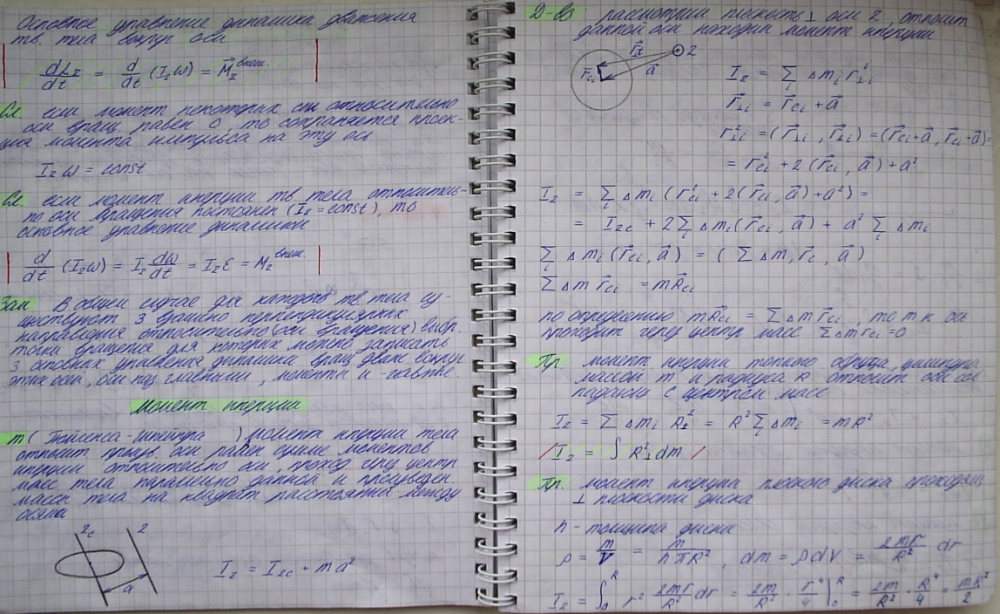 Основное уравнение динамики движения
тв. тела вокруг оси
dLz/dt = d/dt (Iz ω) = Mz внеш.
Сл. если момент некоторых сил относительно
оси вращ. равен 0, то сохраняется проек-
ция момента импульса на эту ось
Iz ω = const
Сл. если момент инерции тв тела относител-
но оси вращения постоянен (Iz = const), то
основное уравнение динамики
d/dt (Iz ω) = Iz dω/dt = Iz ε = Mz внеш.
Зам В общем случае для каждого тв тела су-
ществуют 3 взаимно перпендикулярных
направления относительно (оси вращения) выбр.
точки вращения для которых можно записать
3 основных уравнения динамики вращ движ вокруг
этих оси, оси наз главными, моменты и - главные
Момент инерции
т (Гюйгенса-Штейнера) момент инерции тела
относит произв. оси равен сумме моментов
инерции относительно оси, проход через центр
масс тела параллельно данной и произведен.
массы тела на квадрат расстояния между
осями
zc z
a
Iz = Izc + ma²
Д-во рассмотрим плоскость ⊥ оси z, относит
данной оси находим момент инерции
r⃗i z
r⃗ci a⃗
Iz = Σi Δmi r⊥i²
r⃗⊥i = r⃗ci + a⃗
r⊥i² = (r⃗⊥i, r⃗⊥i) = (r⃗ci + a⃗, r⃗ci + a⃗) =
= rci² + 2(r⃗ci, a⃗) + a²
Iz = Σi Δmi (rci² + 2(r⃗ci, a⃗) + a²) =
= Izc + 2Σi Δmi (r⃗ci, a⃗) + a² Σi Δmi
Σi Δmi (r⃗ci, a⃗) = (Σ Δmi r⃗ci, a⃗)
Σ Δm r⃗ci = mR⃗ci
по определению mR⃗ci = Σ Δm r⃗ci, то т к ось
проходит через центр масс Σ Δm rci = 0
Пр. момент инерции тонкого обруча, цилиндра
массы m и радиуса R относит оси сов
падающ с центром масс
Iz = Σ Δmi R⊥² = R² Σi Δmi = mR²
Iz = ∫ R⊥² dm
Пр. момент инерции плоского диска проходящ
⊥ плоскости диска
h - толщина диска
ρ = m/V = m/hπR², dm = ρdV = 2mr/R² dr
Iz = ∫0^R r² 2mr/R² dr = 2m/R² · r⁴/4 |0^R = 2m/R² · R⁴/4 = mR²/2